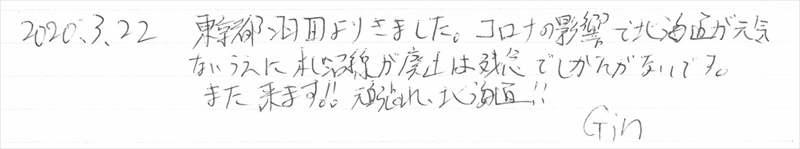 2020.3.22 東京都羽田よりきました。コロナの影響で北海道が元気
ないうえに札沼線が廃止は残念でしかたがないです。
また来ます!! 頑張れ、北海道!!
Gin